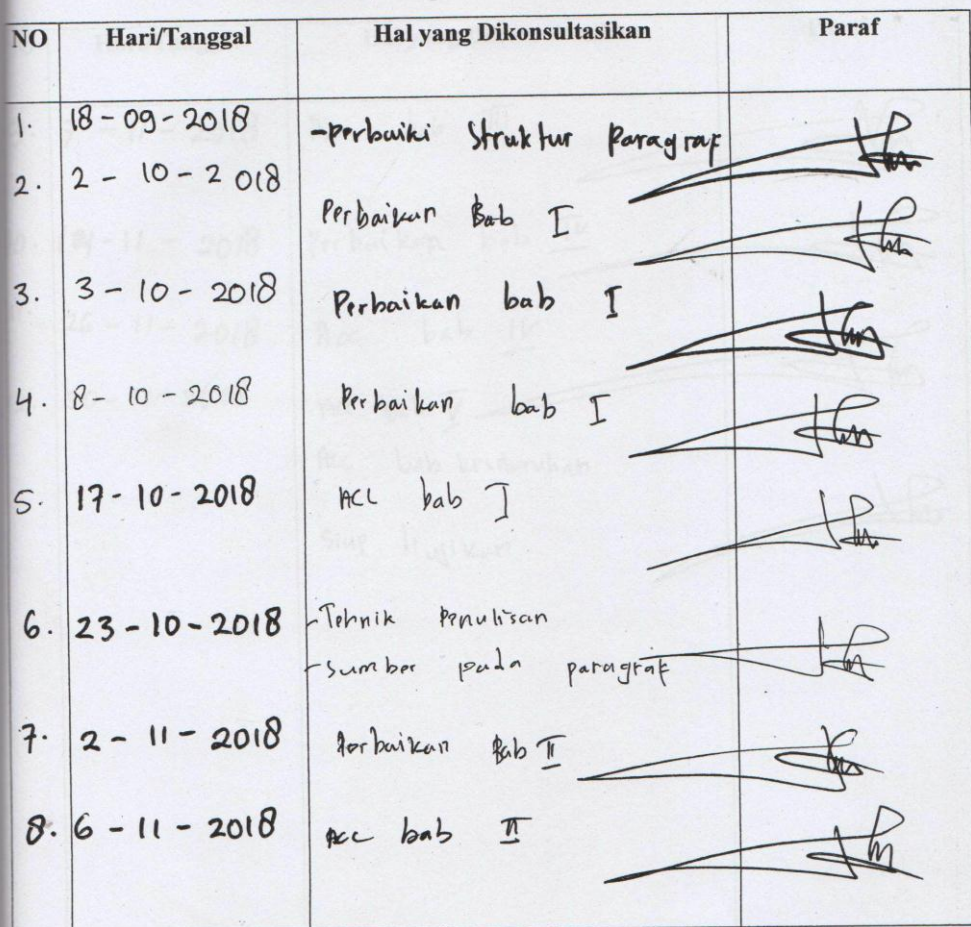 NO Hari/Tanggal Hal yang Dikonsultasikan Paraf
1. 18-09-2018 -perbaiki Struktur Paragraf
2. 2-10-2018 Perbaikan Bab I
3. 3-10-2018 Perbaikan bab I
4. 8-10-2018 Perbaikan bab I
5. 17-10-2018 ACC bab I
6. 23-10-2018 -Tehnik Penulisan
-sumber pada paragraf
7. 2-11-2018 Perbaikan Bab II
8. 6-11-2018 Acc bab II